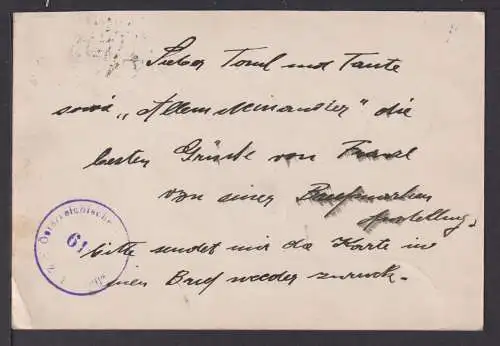 Lieber Onkel und Tante
sowie „Allemiteinander“ die
besten Grüsse von Franzl
von einer Briefmarken
ausstellung,
bitte sendet mir die Karte in
einen Brief wieder zurück.
Österreichische
61